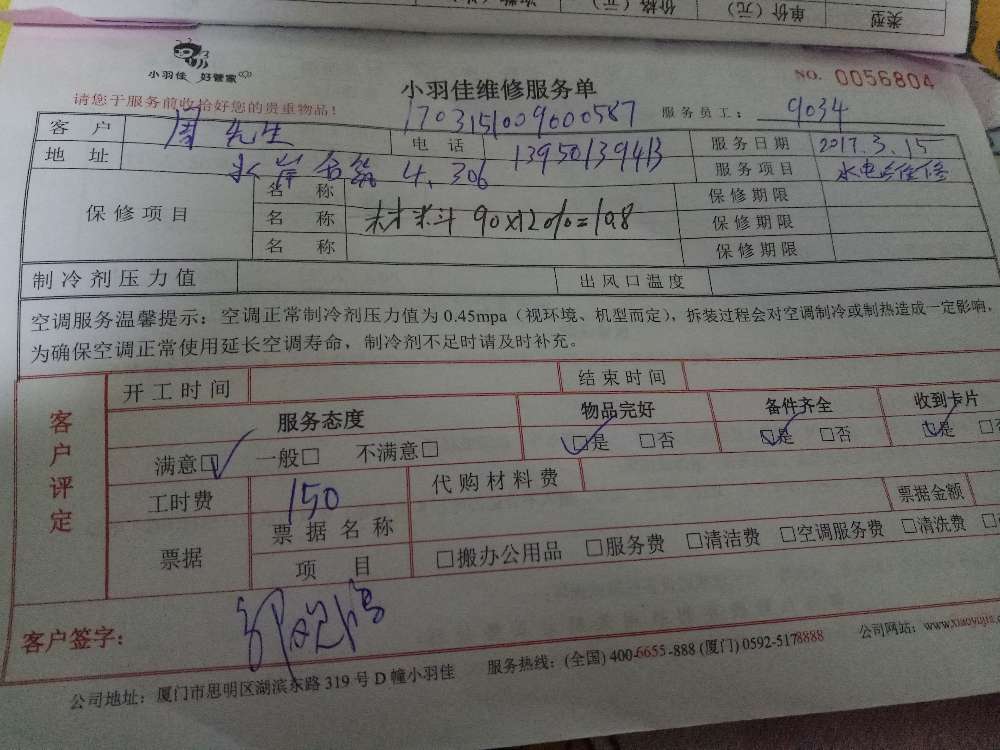 类型 单价（元） 价格（元）
小羽佳 好管家
小羽佳维修服务单
NO. 0056804
请您于服务前收拾好您的贵重物品！
1703151009000587
服务员工： 9034
客户 周先生 电话 13950139413 服务日期 2017.3.15
地址 水岸名筑 4.306 服务项目 水电维修
保修项目 名称 保修期限
名称 材料 90×120%=108 保修期限
名称 保修期限
制冷剂压力值 出风口温度
空调服务温馨提示：空调正常制冷剂压力值为 0.45mpa（视环境、机型而定），拆装过程会对空调制冷或制热造成一定影响，
为确保空调正常使用延长空调寿命，制冷剂不足时请及时补充。
客户评定
开工时间 结束时间
服务态度 物品完好 备件齐全 收到卡片
满意□ 一般□ 不满意□ □是 □否 □是 □否 □是 □否
工时费 150 代购材料费
票据 票据名称 票据金额
项目 □搬办公用品 □服务费 □清洁费 □空调服务费 □清洗费
客户签字：
公司地址：厦门市思明区湖滨东路 319 号 D 幢小羽佳 服务热线：(全国) 400-6655-888 (厦门) 0592-5178888 公司网站：www.xiaoyujia